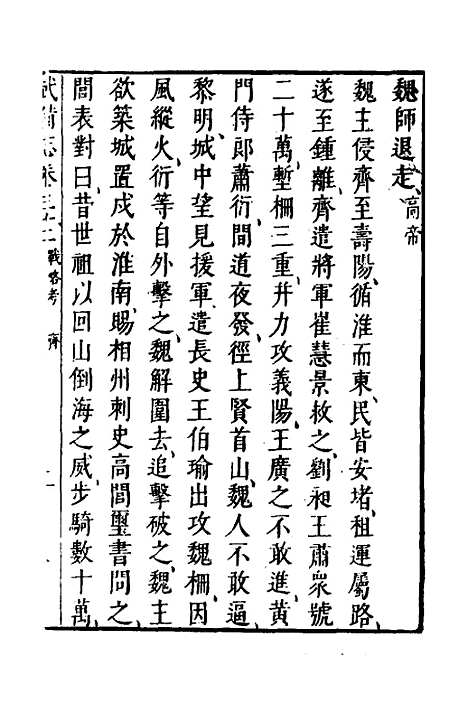 魏師退走高帝
魏主侵齊至壽陽循淮而東民皆安堵租運屬路
遂至鍾離齊遣將軍崔慧景救之劉昶王肅衆號
二十萬塹柵三重并力攻義陽王廣之不敢進黄
門侍郎蕭衍間道夜發徑上賢首山魏人不敢逼
黎明城中望見援軍遣長史王伯瑜出攻魏柵因
風縱火衍等自外擊之魏解圍去追擊破之魏主
欲築城置戍於淮南賜相州刺史高閭璽書問之
閭表對曰昔世祖以回山倒海之威步騎數十萬
武備志卷三十二 戰略考 齊